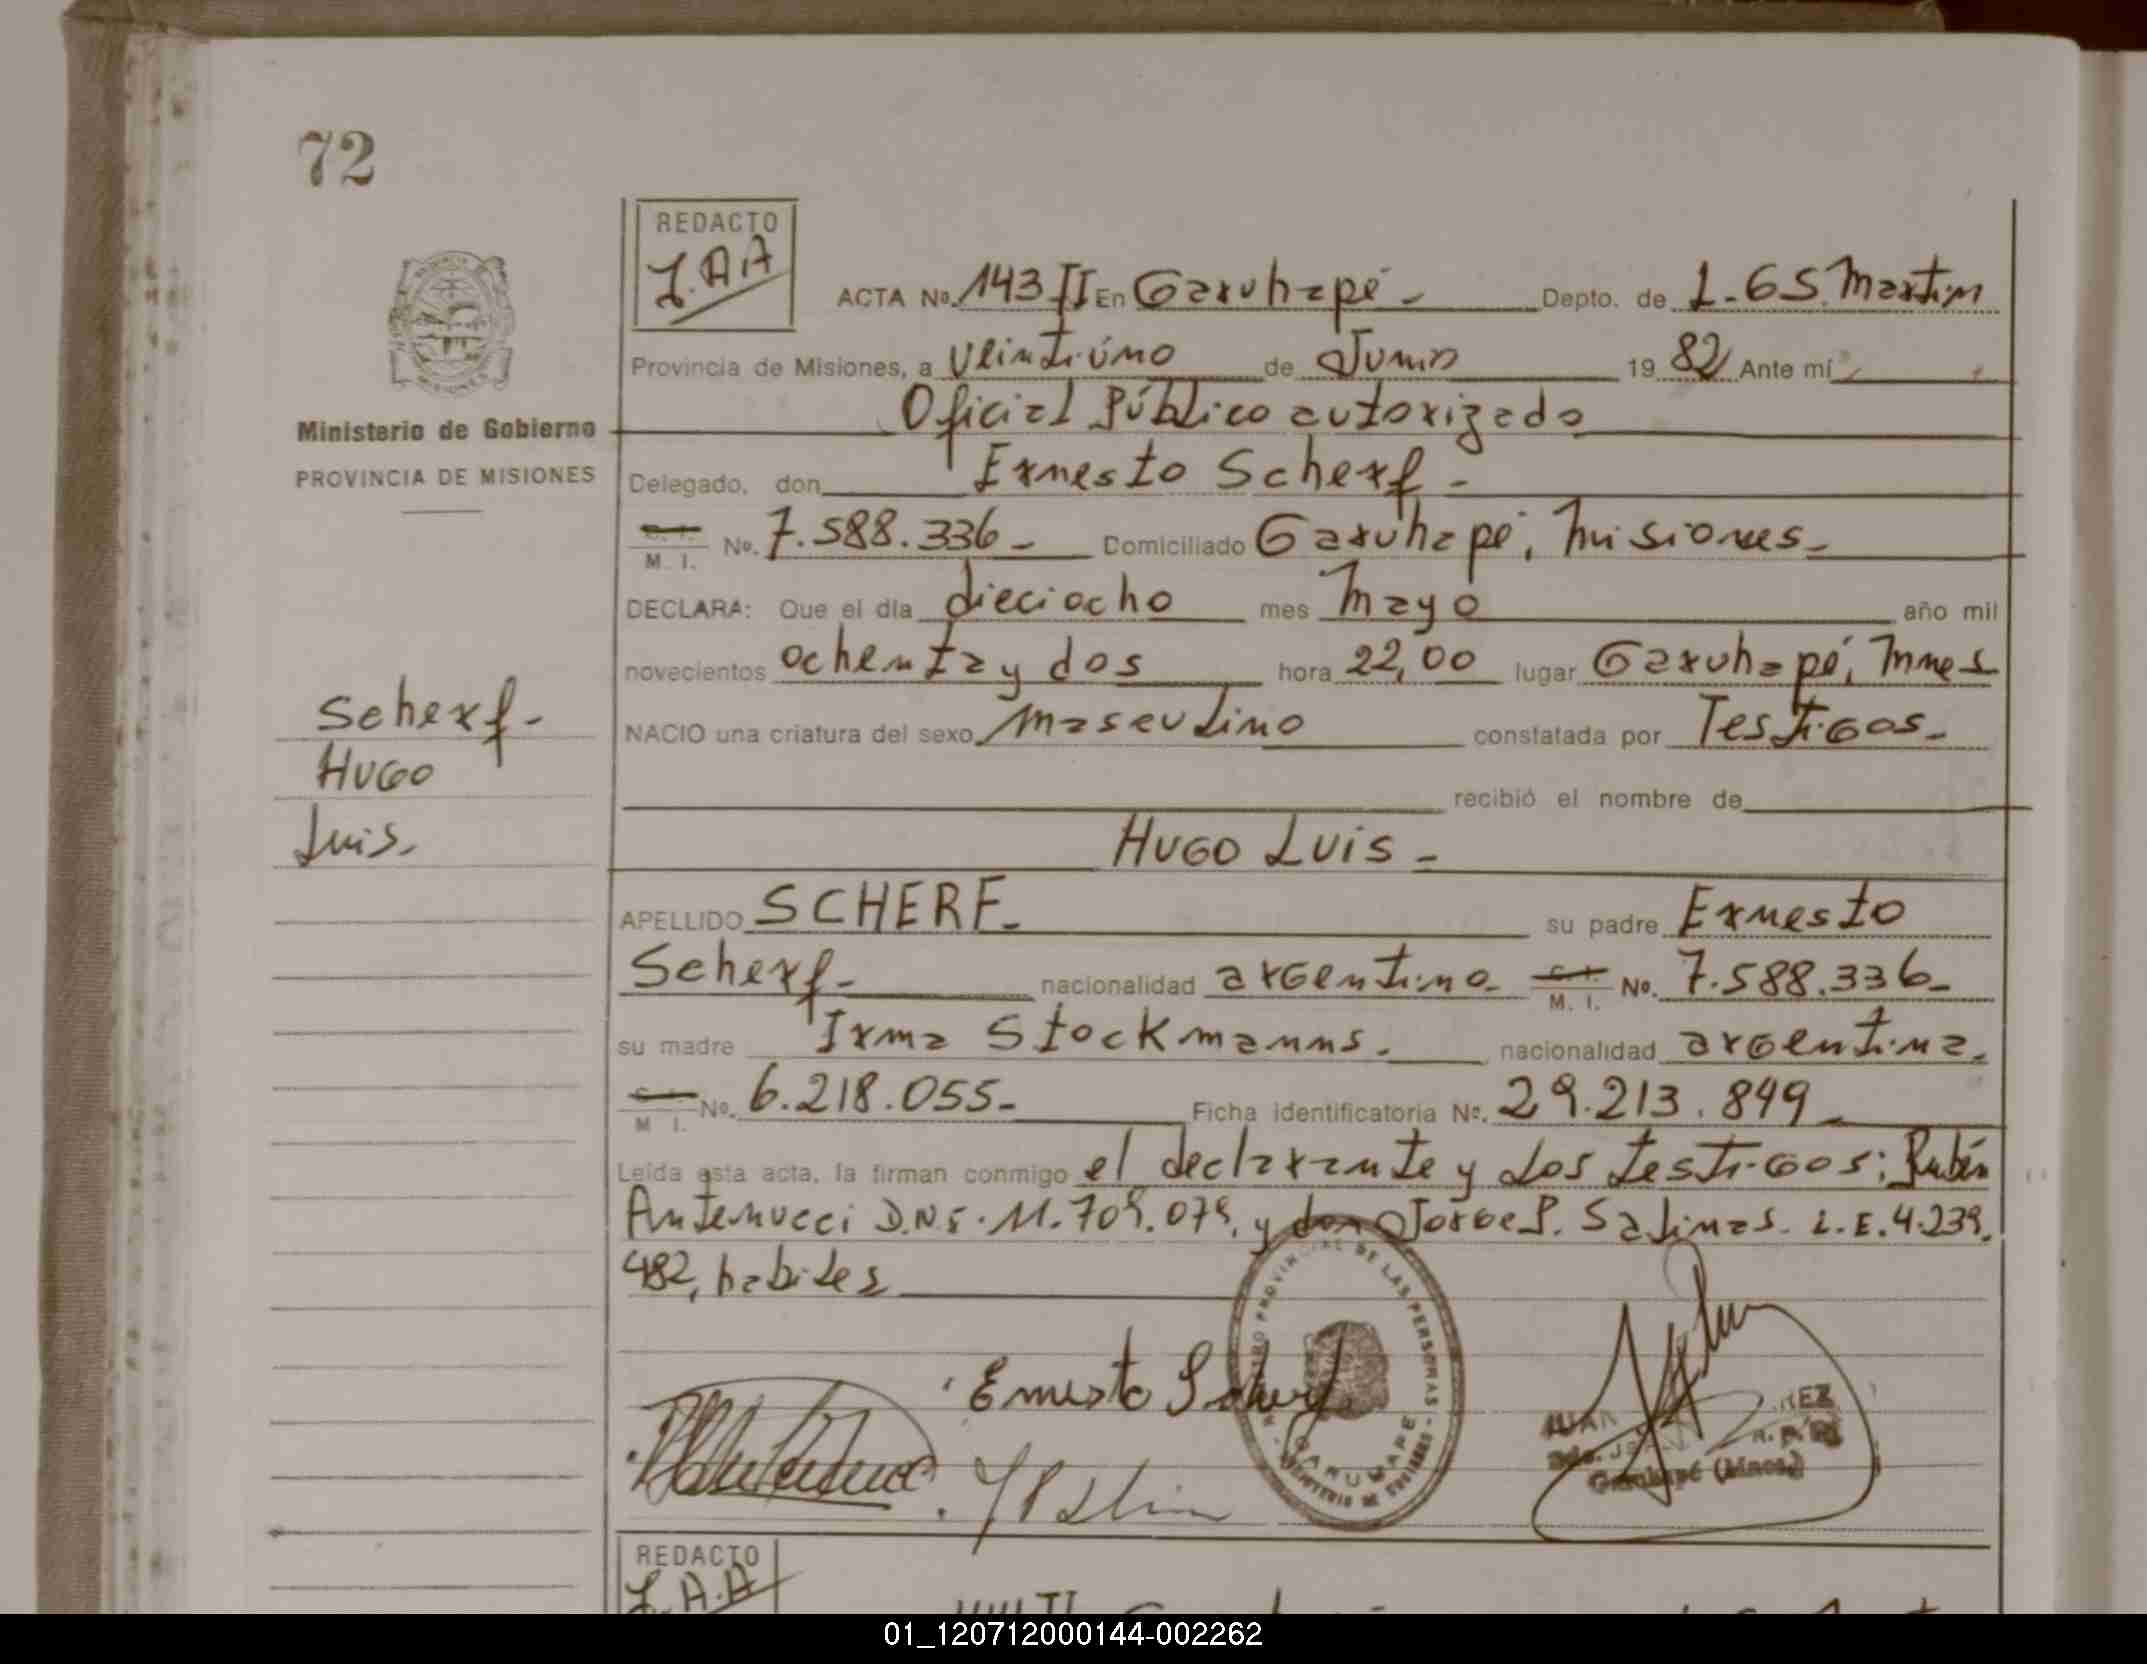 72
REDACTO
J.AA
ACTA No. 143 II En Garuhapé - Depto. de L-G S. Martin
Provincia de Misiones, a Veintiúno de Junio 19 82 Ante mí
Oficial Público autorizado
Ministerio de Gobierno
PROVINCIA DE MISIONES
Delegado, don Ernesto Scherf -
C. I.
M. I. No. 7.588.336 - Domiciliado Garuhapé, Misiones -
DECLARA: Que el día dieciocho mes Mayo año mil
novecientos ochenta y dos hora 22,00 lugar Garuhapé, Mnes
Scherf -
Hugo
Luis.
NACIO una criatura del sexo masculino constatada por Testigos -
recibió el nombre de
HUGO LUIS -
APELLIDO SCHERF - su padre Ernesto
Scherf - nacionalidad argentino - C. I.
M. I. No. 7.588.336 -
su madre Irma Stockmanns. nacionalidad argentina.
M I. No. 6.218.055 - Ficha identificatoria No. 29.213.849 -
Leída esta acta, la firman conmigo el declarante y los testigos; Rubén
Antenucci D.N.I. 11.709.079. y don Jorge P. Salinas. L.E. 4.239.
482, habiles
REGISTRO PROVINCIAL DE LAS PERSONAS
GARUHAPE
MINISTERIO DE GOBIERNO
Ernesto Scherf
JUAN
Garuhapé (Mnes.)
REDACTO
J.A.A
01_120712000144-002262